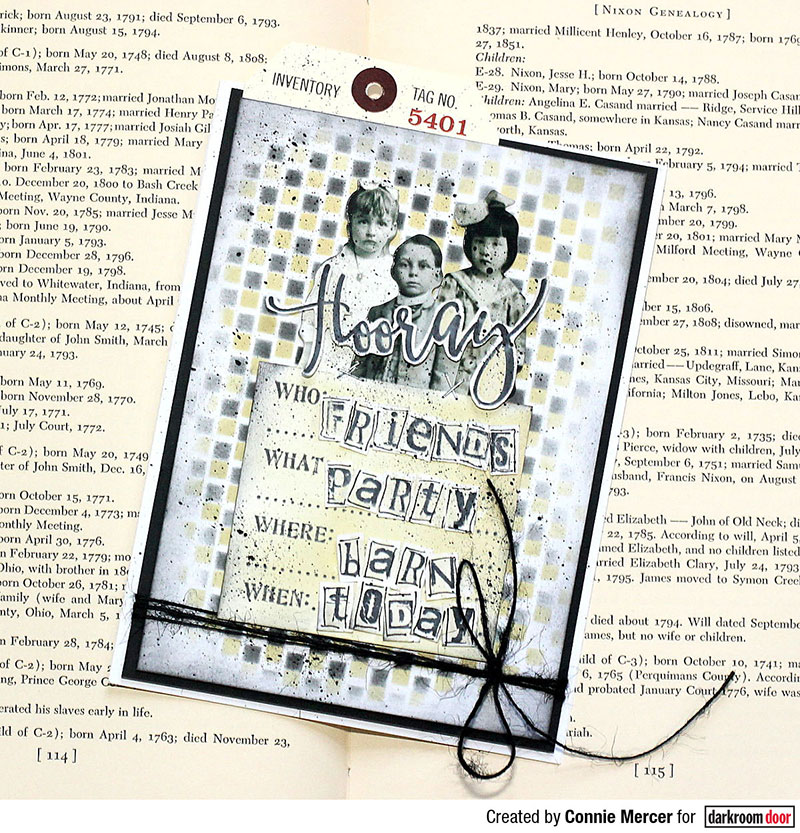 rick; born August 23, 1791; died September 6, 1793.
kinner; born August 15, 1794.
of C-1); born May 20, 1748; died August 8, 1808;
imons, March 27, 1771.
born Feb. 12, 1772; married Jonathan
born March 17, 1774; married Henry
; born Apr. 17, 1777; married Josiah
s; born April 18, 1779; married Mary
ina, June 4, 1801.
born February 23, 1783; married
10. December 20, 1800 to Bash Creek
Meeting, Wayne County, Indiana.
born Nov. 20, 1785; married Jesse
; born June 19, 1790.
born January 5, 1793.
born December 28, 1796.
born December 19, 1798.
ved to Whitewater, Indiana, from
na Monthly Meeting, about April
of C-2); born May 12, 1745;
daughter of John Smith, March
anuary 24, 1793.
born May 11, 1769.
born November 28, 1770.
July 17, 1771.
1; July Court, 1772.
of C-2); born May 20, 1749
ter of John Smith, Dec. 16,
born October 15, 1771.
born December 4, 1773;
onthly Meeting.
born April 30, 1776.
born February 22, 1779;
Ohio, with brother in
born October 26, 1781;
Family (wife and Mary
nty, Ohio, March 5,
born February 28, 1784;
born May
ng, Prince George
erated his slaves early in life.
ld of C-2); born April 4, 1763; died November 23,
[ 114 ]
INVENTORY TAG NO.
5401
Hooray
WHO FRIENDS
WHAT PARTY
WHERE: BARN
WHEN: TODAY
[ NIXON GENEALOGY ]
1837; married Millicent Henley, October 16, 1787; born
27, 1851.
Children:
E-28. Nixon, Jesse H.; born October 14, 1788.
E-29. Nixon, Mary; born May 27, 1790; married Joseph
Children: Angelina E. Casand married —— Ridge, Service
omas B. Casand, somewhere in Kansas; Nancy Casand
worth, Kansas.
Thomas; born April 22, 1792.
February 5, 1794; married
13, 1796.
March 7, 1798.
ember 20, 1799.
ber 20, 1801; married Mary
Milford Meeting, Wayne
ember 20, 1804; died July 27,
ber 15, 1806.
ember 27, 1808; disowned,
October 25, 1811; married
married —— Updegraff, Lane,
nes, Kansas City, Missouri;
fornia; Milton Jones, Lebo,
-3); born February 2, 1735;
Pierce, widow with children, July
, September 6, 1751; married
usband, Francis Nixon, on August
1793.
ed Elizabeth —— John of Old Neck;
22, 1785. According to will, April 5,
amed Elizabeth, and no children listed
arried Elizabeth Clary, July 24, 1793
, 1795. James moved to Symon
died about 1794. Will dated
ames, but no wife or children.
ild of C-3); born October 10, 1741;
6, 1765 (Perquimans County). According
d probated January Court 1776, wife was
riah.
[ 115 ]
Created by Connie Mercer for darkroom door